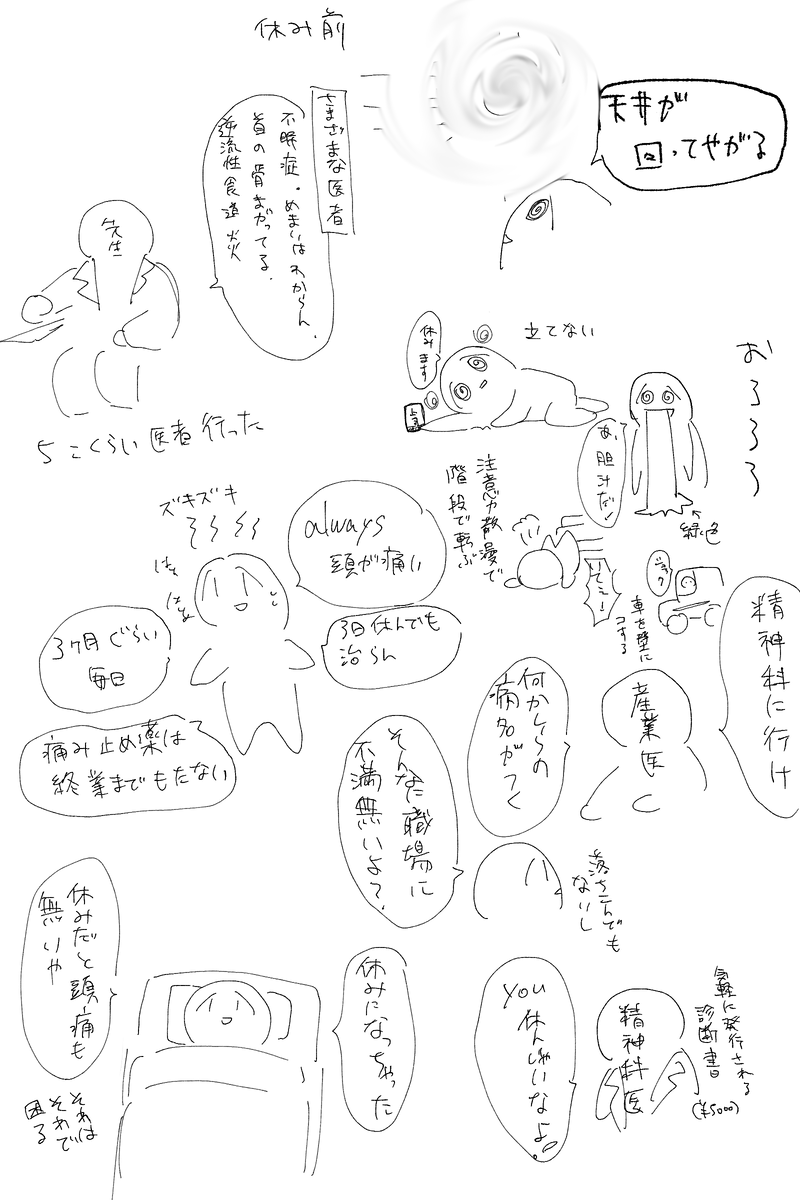 休み前
天井が
回ってやがる
さまざまな医者
不眠症。めまいはわからん。
首の骨まがってる。
逆流性食道炎
先生
5こくらい医者行った
立てない
休みます
上司
おろろろ
あ、胆汁だ!
緑色
ズキズキ
always
頭が痛い
はぁ
はぁ
3日休んでも
治らん
3ヶ月ぐらい
毎日
痛み止め薬は
終業までもたない
注意力散漫で
階段で転ぶ
いてミー!
車を壁に
コする
精神科に行け
産業医
何かしらの
病名がつく
そんなに職場に
不満無いよ?
落ちこんでも
ないし
気軽に発行される
診断書
(¥5000)
精神科医
you
休んじゃいなよ。
休みになっちゃった
休みだと頭痛も
無いや
それは
それで
困る